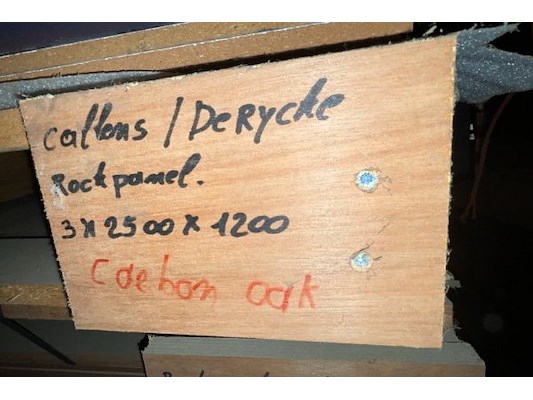 Callens / DeRycke
Rockpanel.
3 x 2500 x 1200
Carbon oak